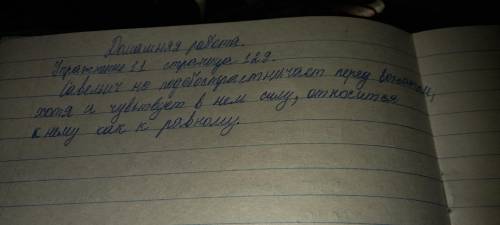 Домашняя работа.
Упражнение 11 страница 129.
Савелич не подобострастничает перед вожатым,
хотя и чувствует в нем силу, относится
к нему как к равному.